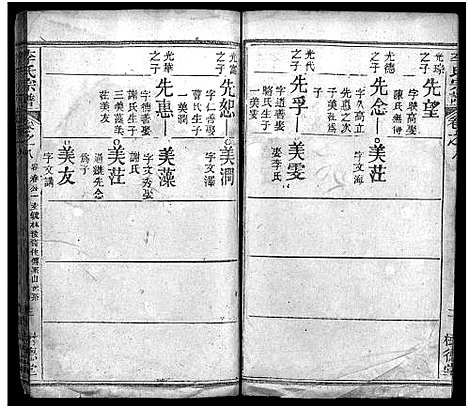 李氏宗譜
卷之八
光瑔之子
先望
字揆高娶
陳氏無傳
光德之子
先念
字久高立
先惠之次
子美莊為子
美莊
字文海
光代之子
先孚
字道善娶
駱氏生子
一美雯
美雯
娶李氏
光富之子
先恕
字仁善娶
曹氏生子
一美澗
美澗
字文澤
光華之子
先惠
字德善娶
謝氏生子
三美藻美
莊美友
美藻
字文秀娶
謝氏
美莊
過繼先念
為子
美友
字文講
李氏宗譜
卷之八